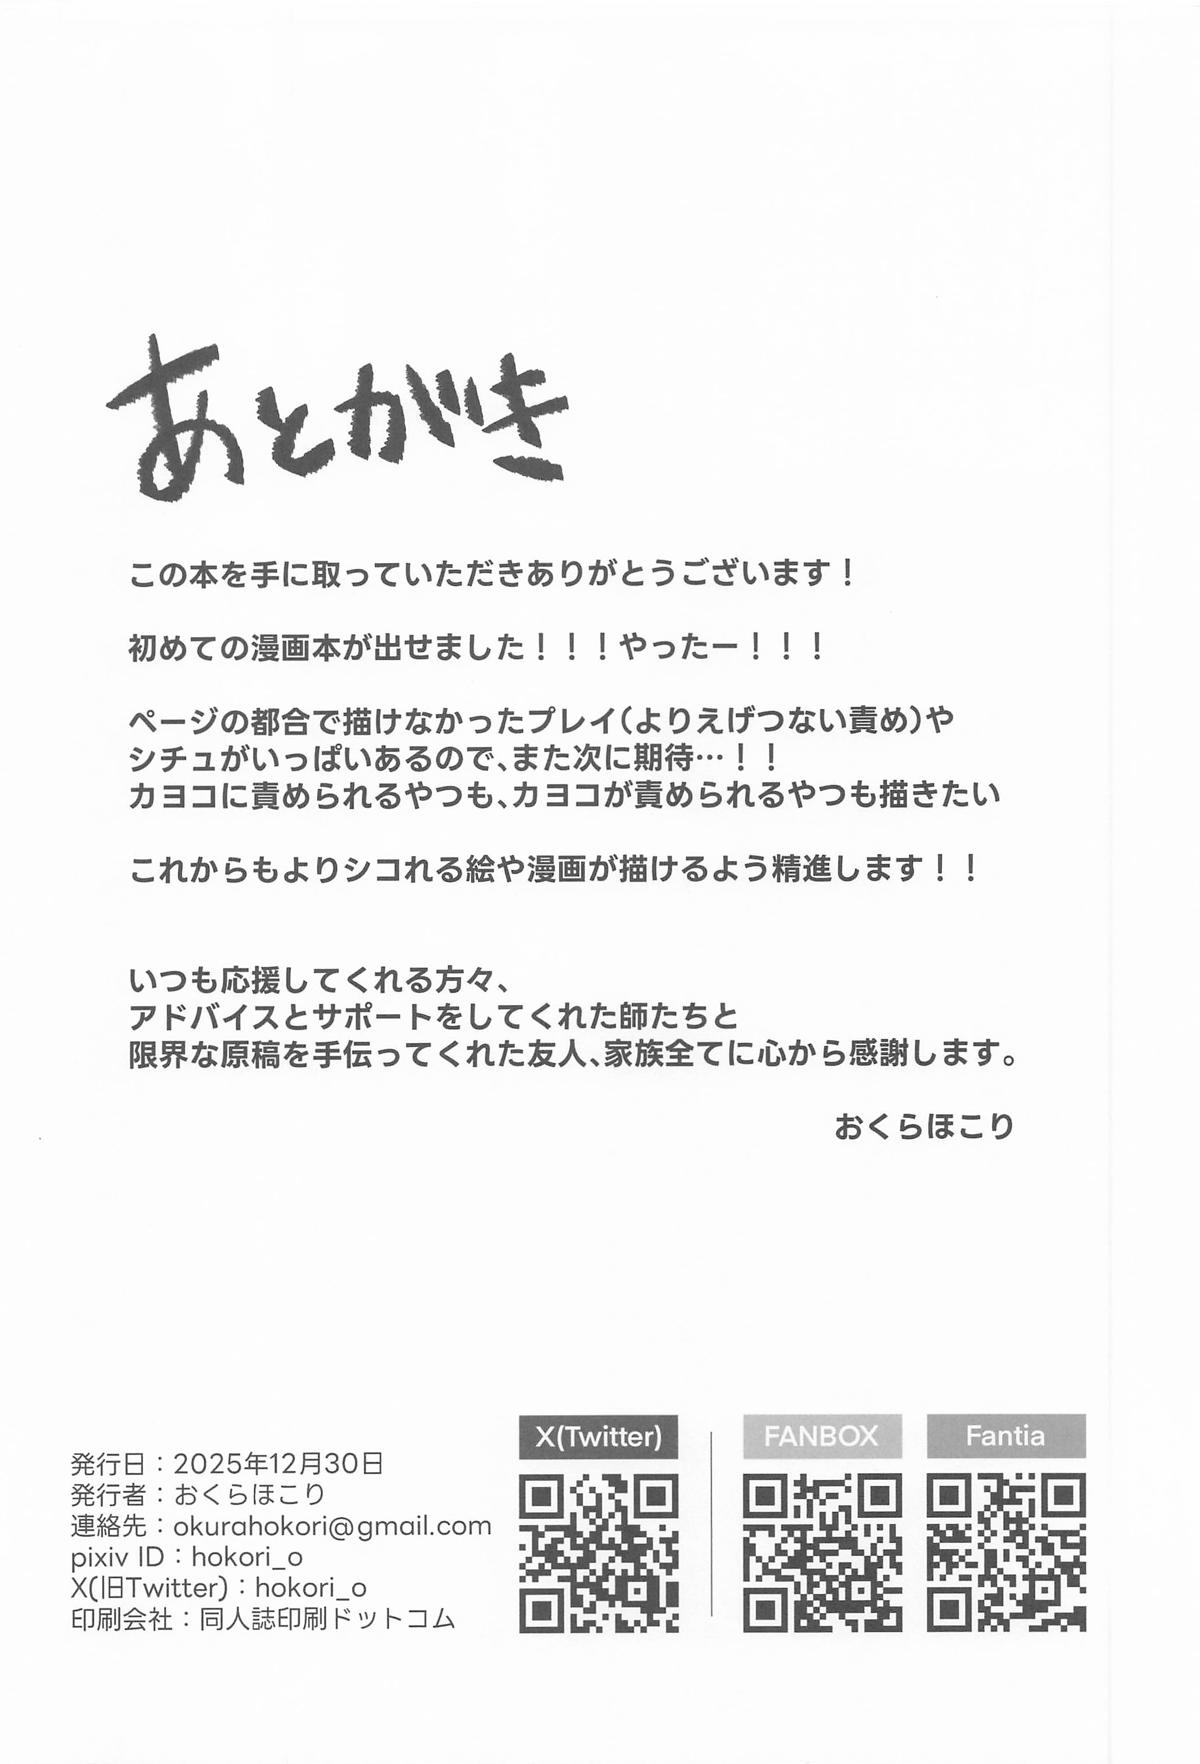 あとがき
この本を手に取っていただきありがとうございます！
初めての漫画本が出せました！！！やったー！！！
ページの都合で描けなかったプレイ（よりえげつない責め）や
シチュがいっぱいあるので、また次に期待…！！
カヨコに責められるやつも、カヨコが責められるやつも描きたい
これからもよりシコれる絵や漫画が描けるよう精進します！！
いつも応援してくれる方々、
アドバイスとサポートをしてくれた師たちと
限界な原稿を手伝ってくれた友人、家族全てに心から感謝します。
おくらほこり
発行日：2025年12月30日
発行者：おくらほこり
連絡先：okurahokori@gmail.com
pixiv ID：hokori_o
X(旧Twitter)：hokori_o
印刷会社：同人誌印刷ドットコム
X(Twitter)
FANBOX
Fantia